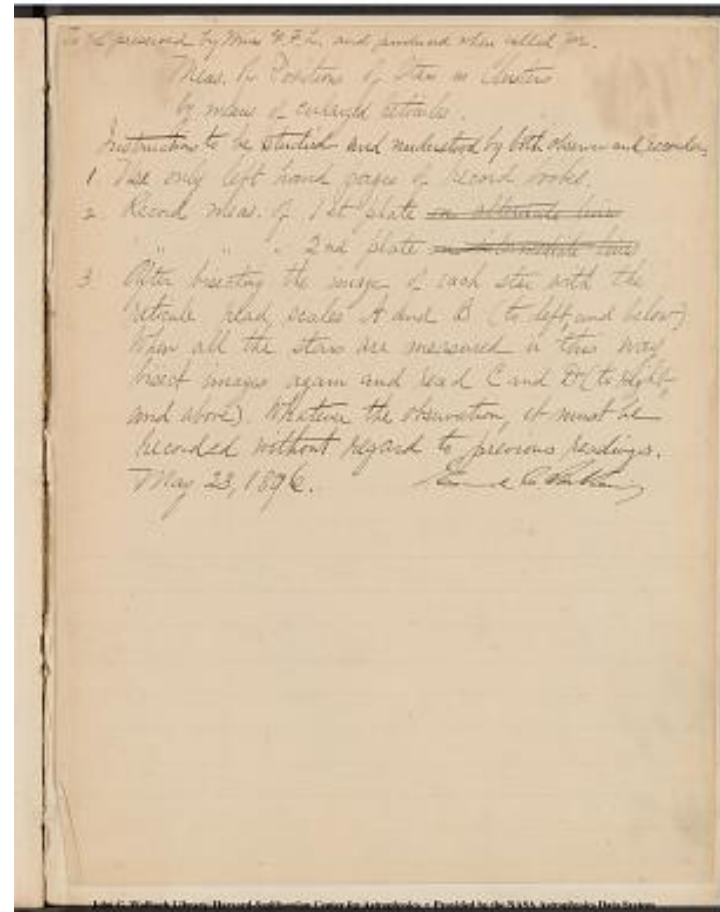 To be preserved by Miss E. F. L. and produced when called for.
Meas. for Positions of Stars in Clusters
by means of enlarged reticules.
Instructions to be studied and understood by both observer and recorder.
1. Use only left hand pages of record books.
2. Record meas. of 1st plate on alternate lines
" " " 2nd plate on intermediate lines
3. After bisecting the image of each star with the
reticule read, scales A and B (to left, and below)
When all the stars are measured in this way
bisect images again and read C and D (to right,
and above). Whatever the observation, it must be
recorded without regard to previous readings.
May 23, 1896. Edward C. Pickering
John G. Wolbach Library, Harvard-Smithsonian Center for Astrophysics • Provided by the NASA Astrophysics Data System